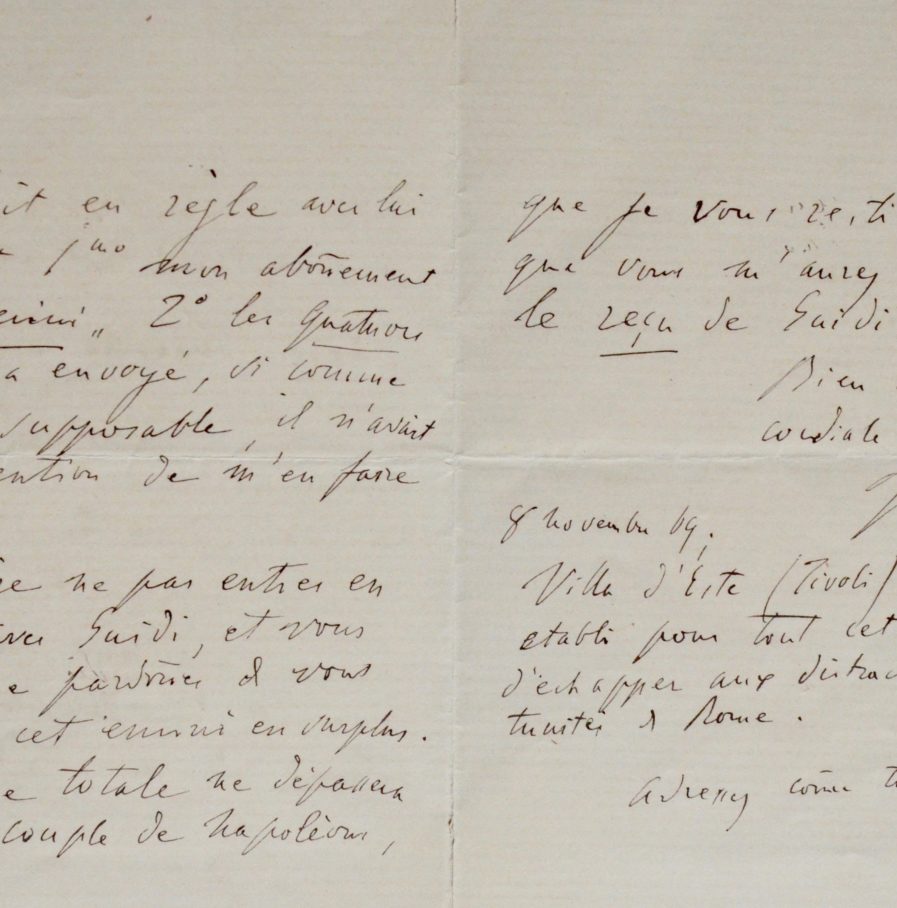 it en règle avec lui
1mo mon aboñement
" 2° les Quatuors
a envoyé, si comme
supposable, il n'avait
ention de m'en faire
ne pas entrer en
avec Guidi, et vous
e pardoñer de vous
cet ennui en surplus.
e totale ne dépassera
couple de Napoléons,
que je vous resti
que vous m'aurez
le reçu de Guidi
Bien
cordiale
8 novembre 69,
Villa d'Este (Tivoli)
etabli pour tout cet
d'echapper aux distrac
tunités de Rome.
Adressez com̃e t